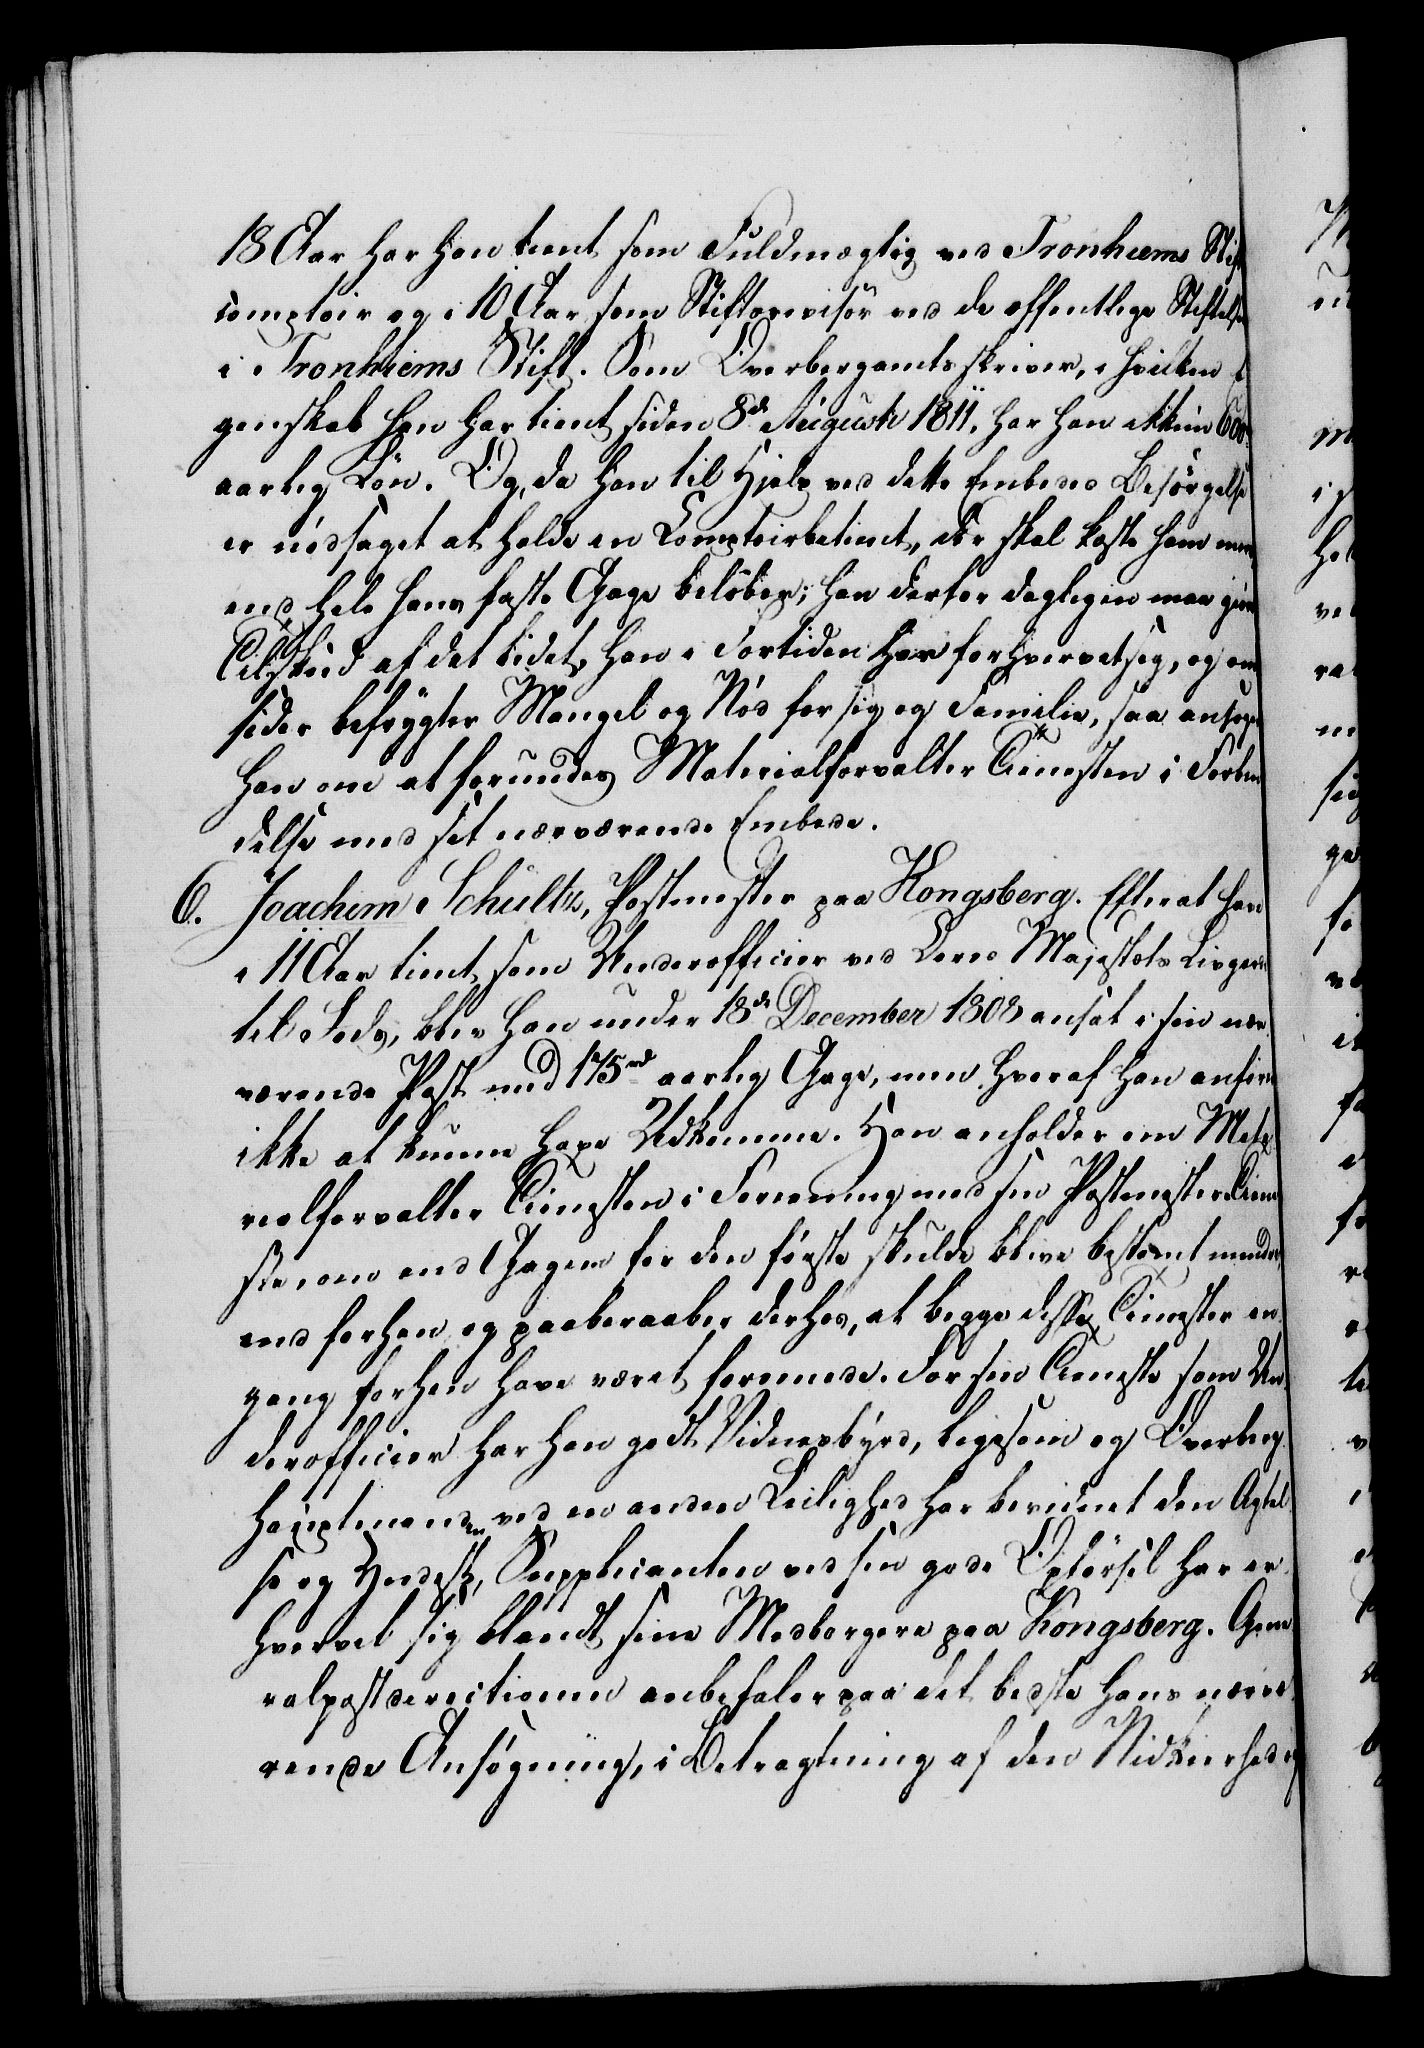 18 Aar har han tient som Fuldmægtig ved Tronhiems Stift
comptoir og i 10 Aar som Stiftsrevisor ved de offentlige Stiftelser
i Tronhiems Stift. Som Overbergamtsskriver, i hvilken E
genskab han har tient siden 8de Augusti 1811, har han ikkun 600
aarlig Løn. Og, da han til Hjelp ved dette Embedes Besørgelse
er nødsaget at holde en Comptoirbetient, der skal koste ham mere
end hele hans faste Gage beløber; han derfor dagligen maa giøre
Tilskud af det lidet, han i Fortiden har forhvervet sig, og om
sider befrygter Mangel og Nød for sig og Familie, saa ansøger
han om at forundes Materialforvalter Tienesten i Forbin
delse med sit nærværende Embede.
6. Joachim Schultz, Postmester paa Kongsberg. Efterat han
i 11 Aar tient som Underofficier ved Deres Majestæts Livgarde
til Fods, blev han under 18de December 1808 ansat i sin nær
værende Post med 175 rd aarlig Gage, men hveraf han anfører
ikke at kunne have Udkomme. Han anholder om Mate
rialforvalter Tienesten i Forening med sin Postmestertiene
ste, om end Gagen for den første skulde blive bestemt mindre
end forhen og paaberaaber derhos, at begge disse Tienester en
gang forhen have været forenede. For sin Tieneste som Un
derofficier har han godt Vidnesbyrd, ligesom og Overberg
hauptmanden ved en anden Leilighed har bevidnet den Agtel
se og Yndest, Supplicanten ved sin gode Opførsel har er
hvervet sig blandt sine Medborgere paa Kongsberg. Gene
ralpostdirectionen anbefaler paa det bedste hans nærvæ
rende Ansøgning, i Betragtning af den Nidkierhed og